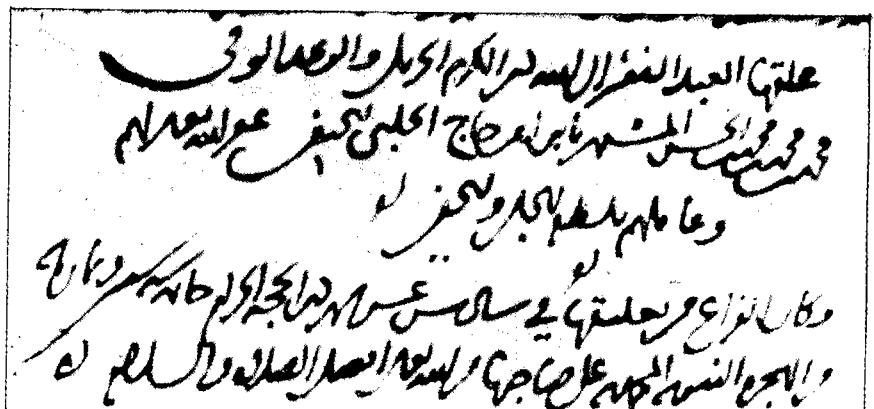 علقها العبد الفقير إلى الله ذى الكرم الجزيل والوعد الوفي
محمد بن محمد بن محمد بن الحسن المشهر بابن أمير حاج الحلبي الحنفي عفر الله تعالى لهم
وعاملهم بلطفه الجلي والخفي
وكان الفراغ من تعليقها في سادس عشر شهر ذي الحجة الحرام خاتمة سنة وثمان مائة
من الهجرة النبوية المحمدية على صاحبها من الله تعالى أفضل الصلاة والسلام